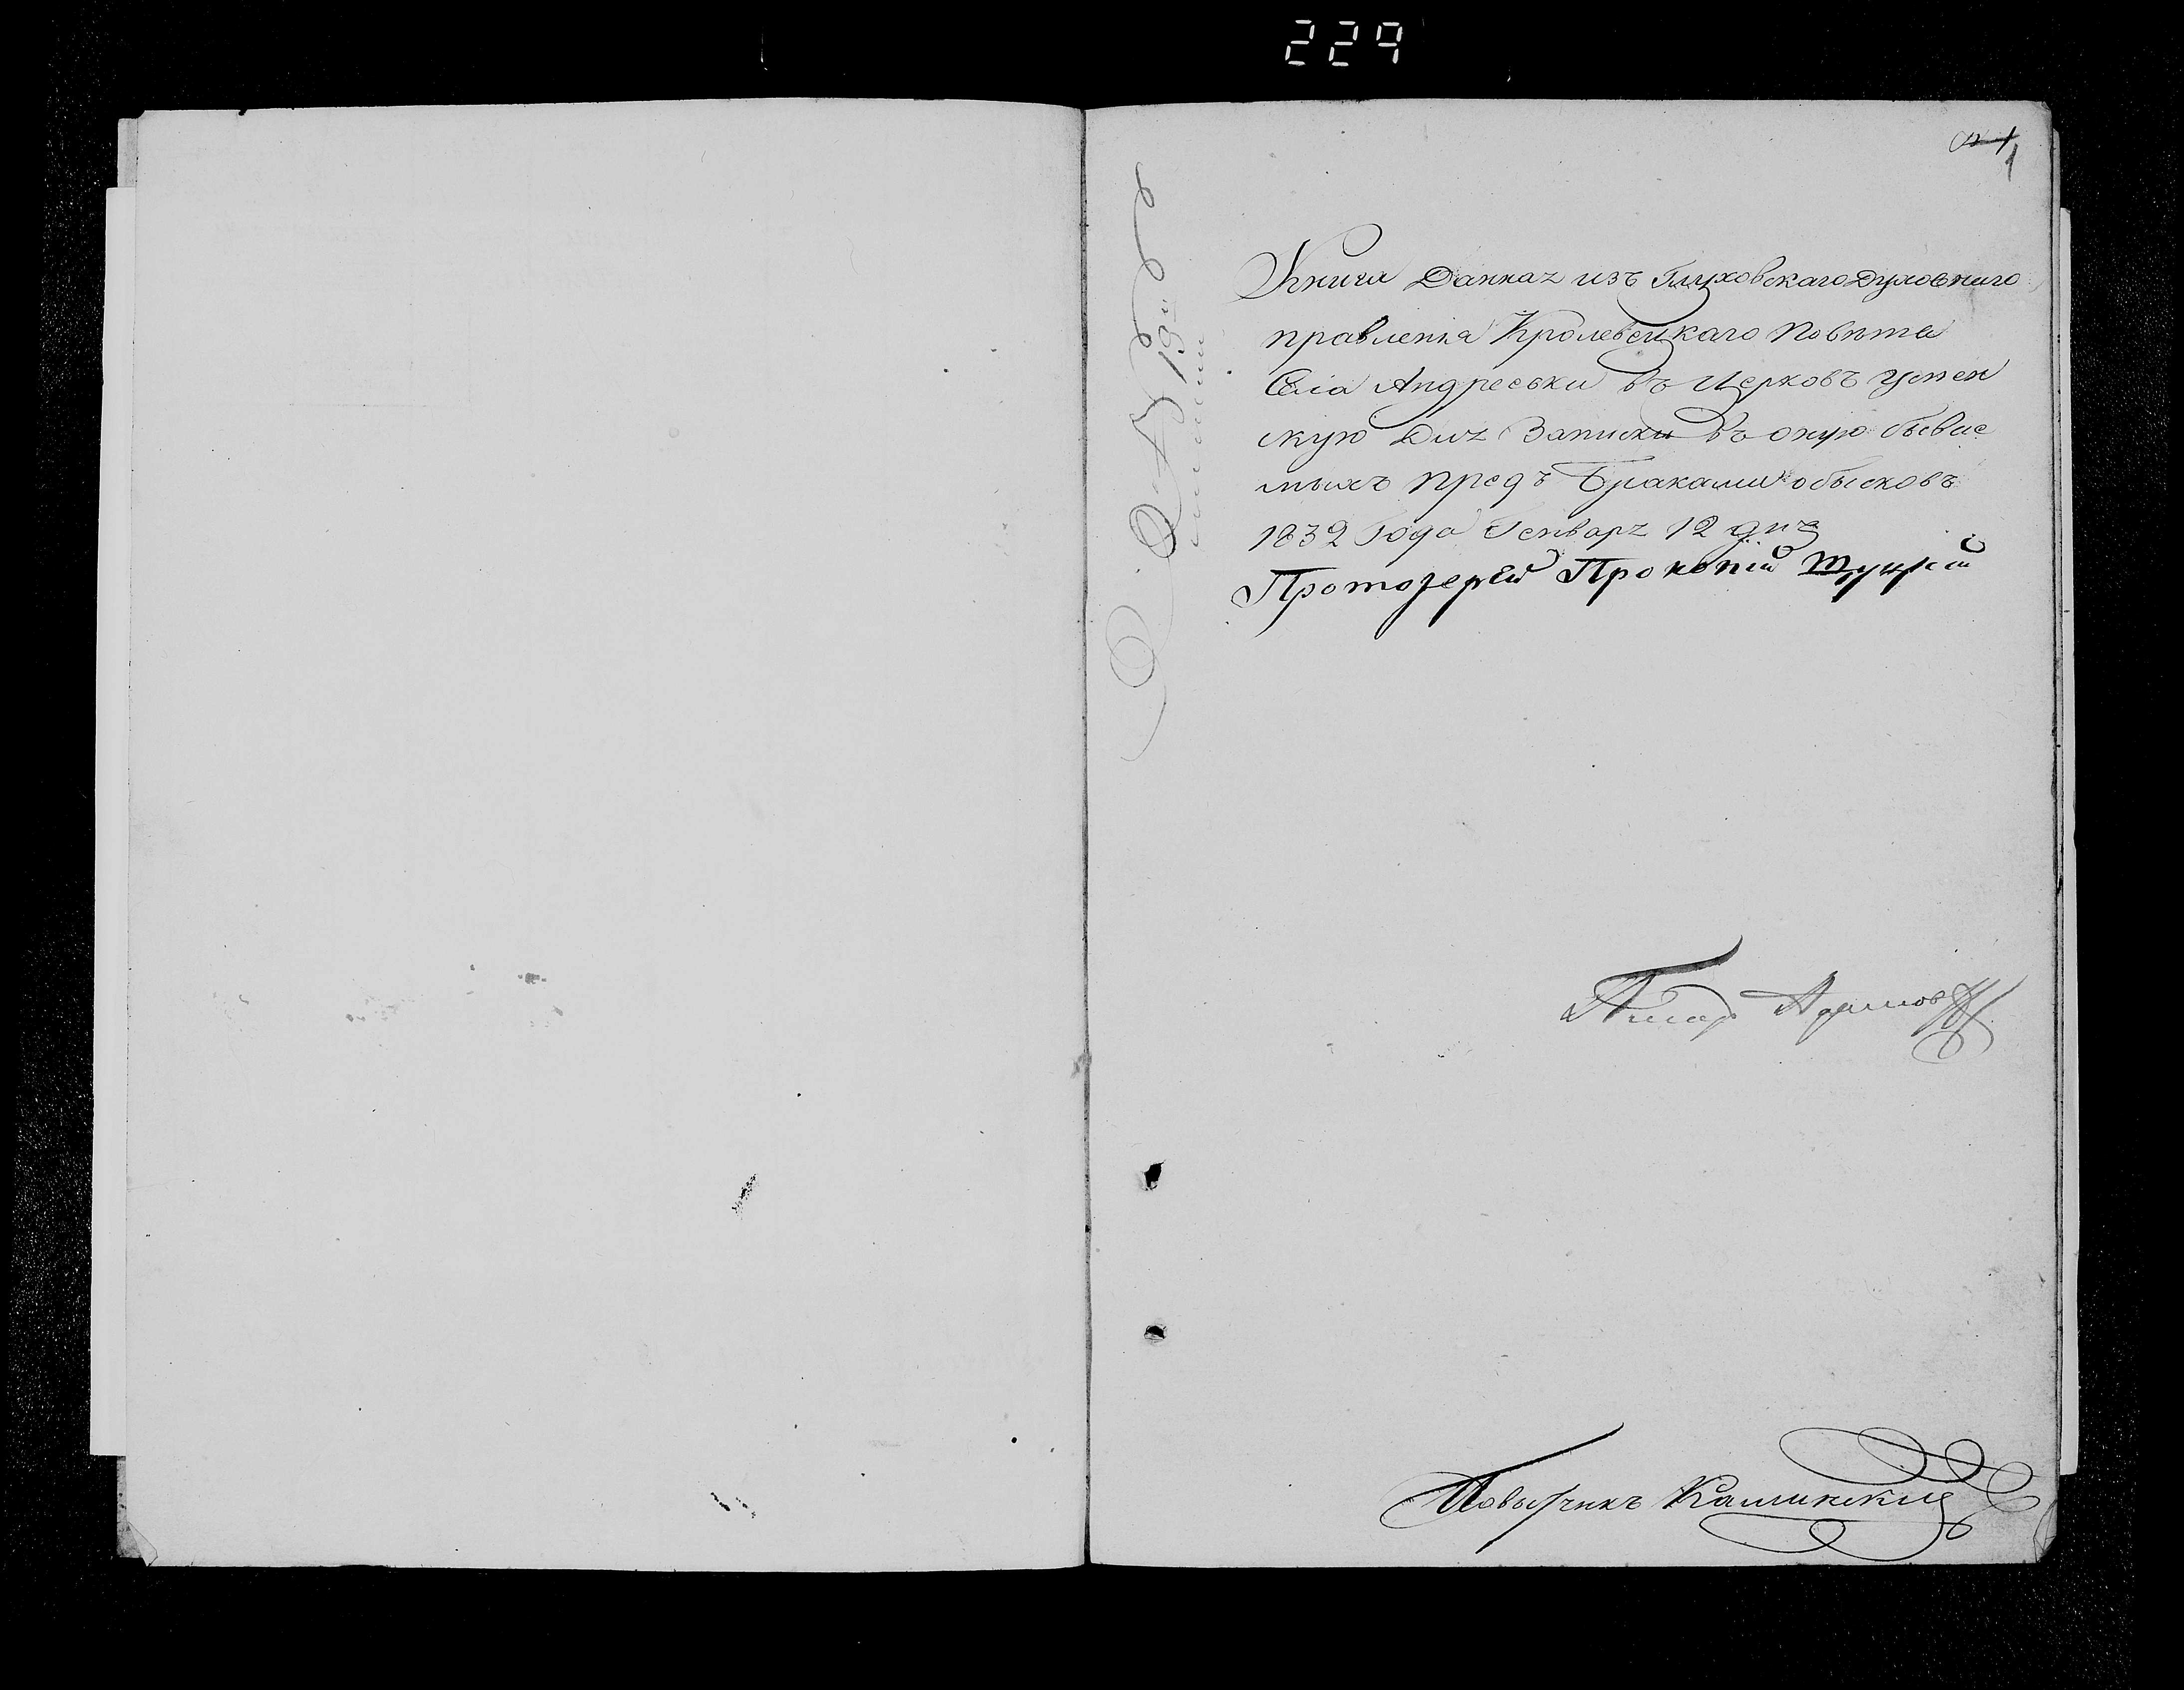 229
1
Книга Данная изъ Глуховскаго Духовнаго
правленія Кролевецкаго Повѣта
Села Андреевки въ Церковъ успен
скую Для Записки въ оную бывае
мыхъ предъ Браками обысковъ
1832 Года Генваря 12 дня
Протоіерей Прокопій
Повытчикъ Калинскій